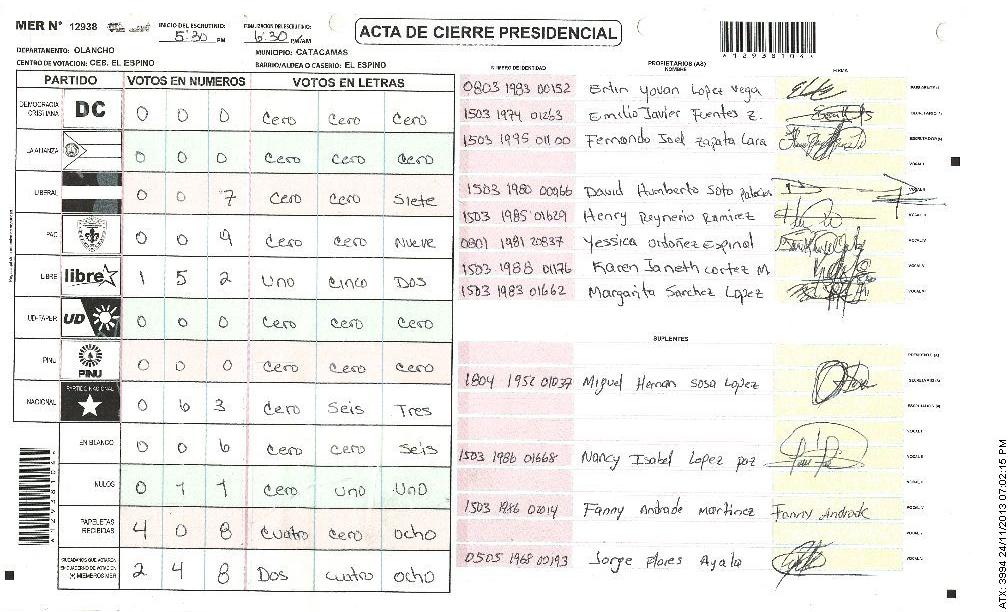 MER N° 12938
INICIO DEL ESCRUTINIO: 5:30 PM
FINALIZACION DEL ESCRUTINIO: 6:30 PM/AM
ACTA DE CIERRE PRESIDENCIAL
*12938104*
DEPARTAMENTO: OLANCHO
MUNICIPIO: CATACAMAS
CENTRO DE VOTACION: CEB. EL ESPINO
BARRIO/ALDEA O CASERIO: EL ESPINO
PARTIDO VOTOS EN NUMEROS VOTOS EN LETRAS
DEMOCRACIA CRISTIANA DC 0 0 0 Cero Cero Cero
LA ALIANZA 0 0 0 Cero Cero Cero
LIBERAL 0 0 7 Cero Cero Siete
PAC 0 0 9 Cero Cero Nueve
LIBRE libre 1 5 2 Uno Cinco Dos
UD-FAPER UD 0 0 0 Cero Cero Cero
PINU PINU 0 0 0 Cero Cero Cero
NACIONAL PARTIDO NACIONAL 0 6 3 Cero Seis Tres
EN BLANCO 0 0 6 Cero Cero Seis
NULOS 0 1 1 Cero Uno Uno
PAPELETAS RECIBIDAS 4 0 8 Cuatro Cero Ocho
CIUDADANOS QUE VOTARON EN CUADERNO DE VOTACION (+) MIEMBROS MER 2 4 8 Dos Cuatro Ocho
PROPIETARIOS (AS)
NUMERO DE IDENTIDAD NOMBRE FIRMA
0803 1983 00152 Erlin Yovan Lopez Vega PRESIDENTE
1503 1974 01263 Emilio Javier Fuentes Z.
1503 1995 01100 Fernando Joel Zapata Lara
VOCAL I
1503 1980 00966 David Humberto Soto Palacios
1503 1985 01629 Henry Reynerio Ramirez
0801 1981 20837 Yessica Ordoñez Espinal VOCAL IV
1503 1988 01176 Karen Janeth Cortez M VOCAL V
1503 1983 01662 Margarita Sanchez Lopez VOCAL VI
SUPLENTES
PRESIDENTE (A)
1804 1952 01037 Miguel Hernan Sosa Lopez SECRETARIO (A)
ESCRUTADOR (A)
VOCAL I
1503 1986 01668 Nancy Isabel Lopez Paz VOCAL II
1503 1986 02014 Fanny Andrade Martinez Fanny Andrade VOCAL IV
VOCAL V
0505 1968 00193 Jorge Flores Ayala VOCAL VI
ATX: 3994 24/11/2013 07:02:15 PM